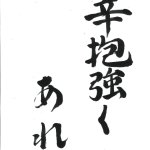 辛抱強く
あれ